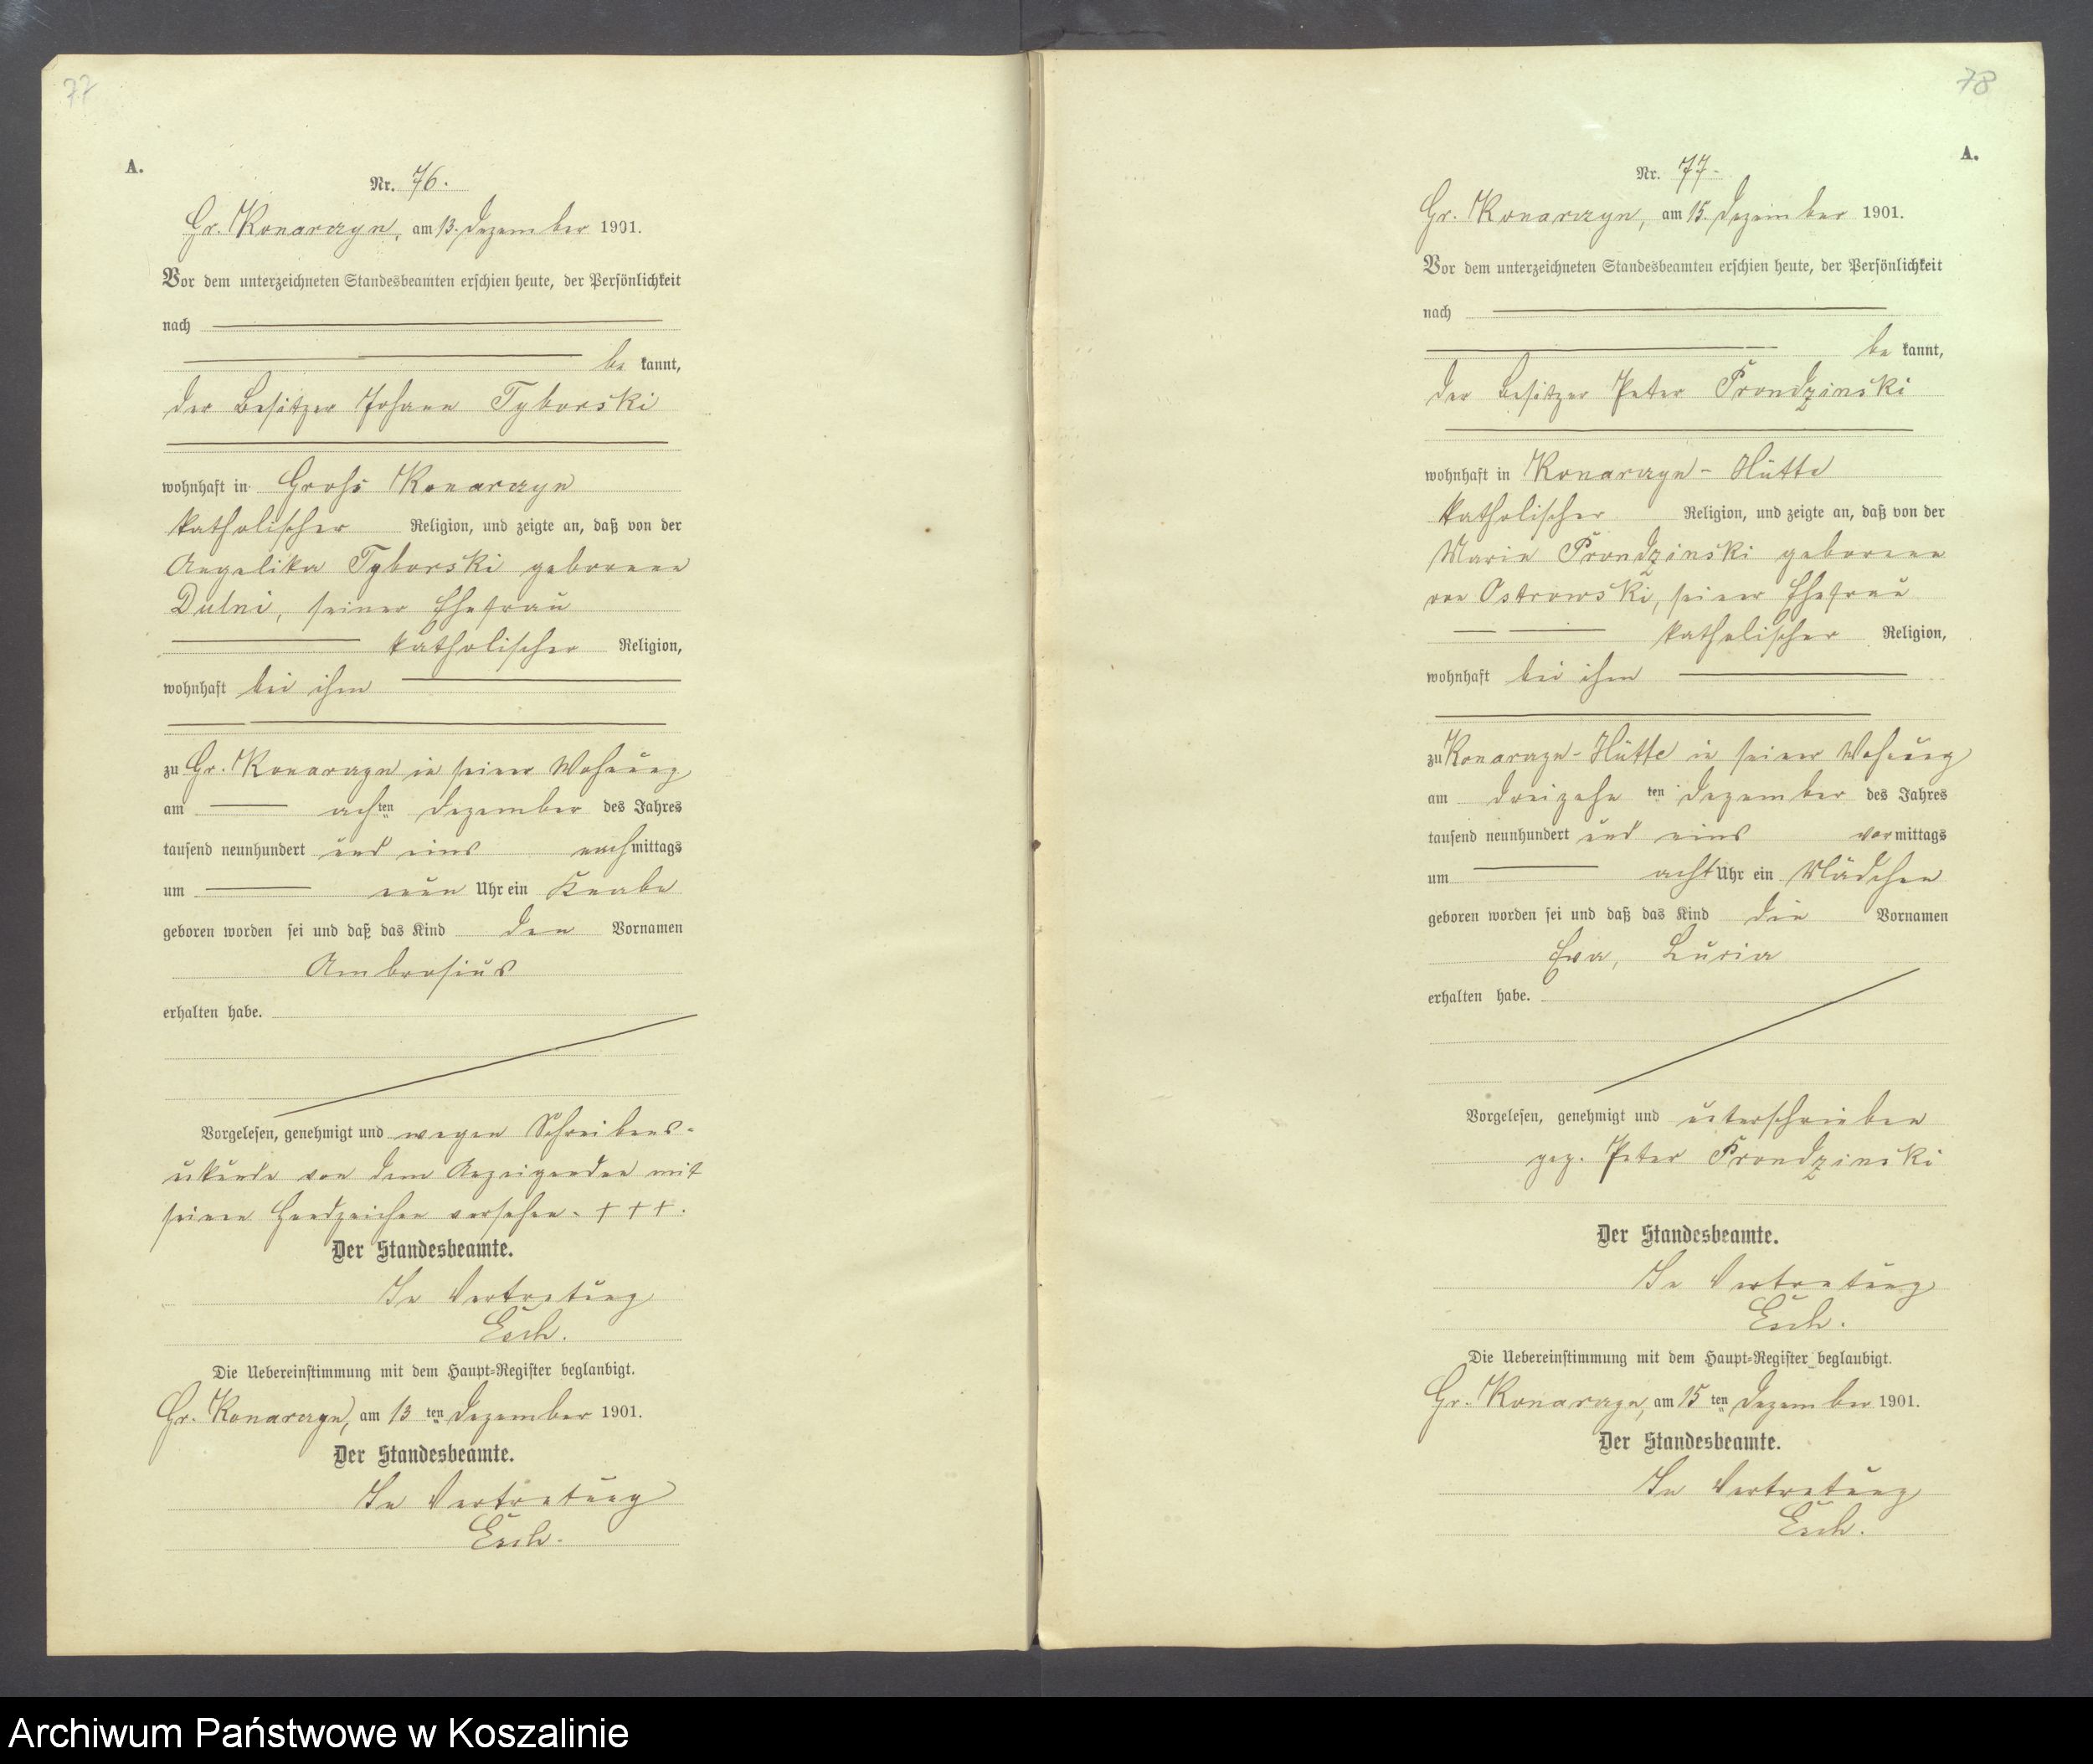 77
A.
Nr. 76.
Gr. Konarczyn, am 13. Dezember 1901.
Vor dem unterzeichneten Standesbeamten erschien heute, der Persönlichkeit
nach
be kannt,
der Besitzer Johann Tyborski
wohnhaft in Groß Konarczyn
katholischer Religion, und zeigte an, daß von der
Angelika Tyborski geborene
Dulni, seiner Ehefrau
katholischer Religion,
wohnhaft bei ihm
zu Gr. Konarczyn in seiner Wohnung
am achten Dezember des Jahres
tausend neunhundert und eins nachmittags
um neun Uhr ein Knabe
geboren worden sei und daß das Kind den Vornamen
Ambrosius
erhalten habe.
Vorgelesen, genehmigt und wegen Schreibens-
unkunde von dem Anzeigenden mit
seinen Handzeichen versehen. +++.
Der Standesbeamte.
In Vertretung
Esch.
Die Uebereinstimmung mit dem Haupt-Register beglaubigt.
Gr. Konarczyn, am 13 ten Dezember 1901.
Der Standesbeamte.
In Vertretung
Esch.
78
A.
Nr. 77.
Gr. Konarczyn, am 15. Dezember 1901.
Vor dem unterzeichneten Standesbeamten erschien heute, der Persönlichkeit
nach
be kannt,
der Besitzer Peter Prondzinski
wohnhaft in Konarczyn-Hütte
katholischer Religion, und zeigte an, daß von der
Maria Prondzinski geborene
von Ostrowski, seiner Ehefrau
katholischer Religion,
wohnhaft bei ihm
zu Konarczyn-Hütte in seiner Wohnung
am dreizehn ten Dezember des Jahres
tausend neunhundert und eins vormittags
um acht Uhr ein Mädchen
geboren worden sei und daß das Kind die Vornamen
Eva,
erhalten habe.
Vorgelesen, genehmigt und unterschrieben
gez. Peter Prondzinski
Der Standesbeamte.
In Vertretung
Esch.
Die Uebereinstimmung mit dem Haupt-Register beglaubigt.
Gr. Konarczyn, am 15 ten Dezember 1901.
Der Standesbeamte.
In Vertretung
Esch.
Archiwum Państwowe w Koszalinie